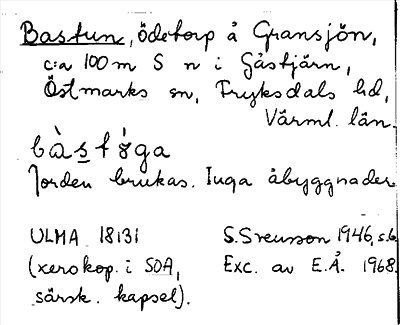 Bastun, ödetorp å Gransjön,
c:a 100 m S n i Gåstjärn,
Östmarks sn, Fryksdals hd,
Värml. län.
bàstóga
Jorden brukas. Inga åbyggnader
ULMA 18131 S. Svensson 1946, s.6
(xerokop. i SOA, Exc. av E.Å. 1968.
särsk. kapsel).